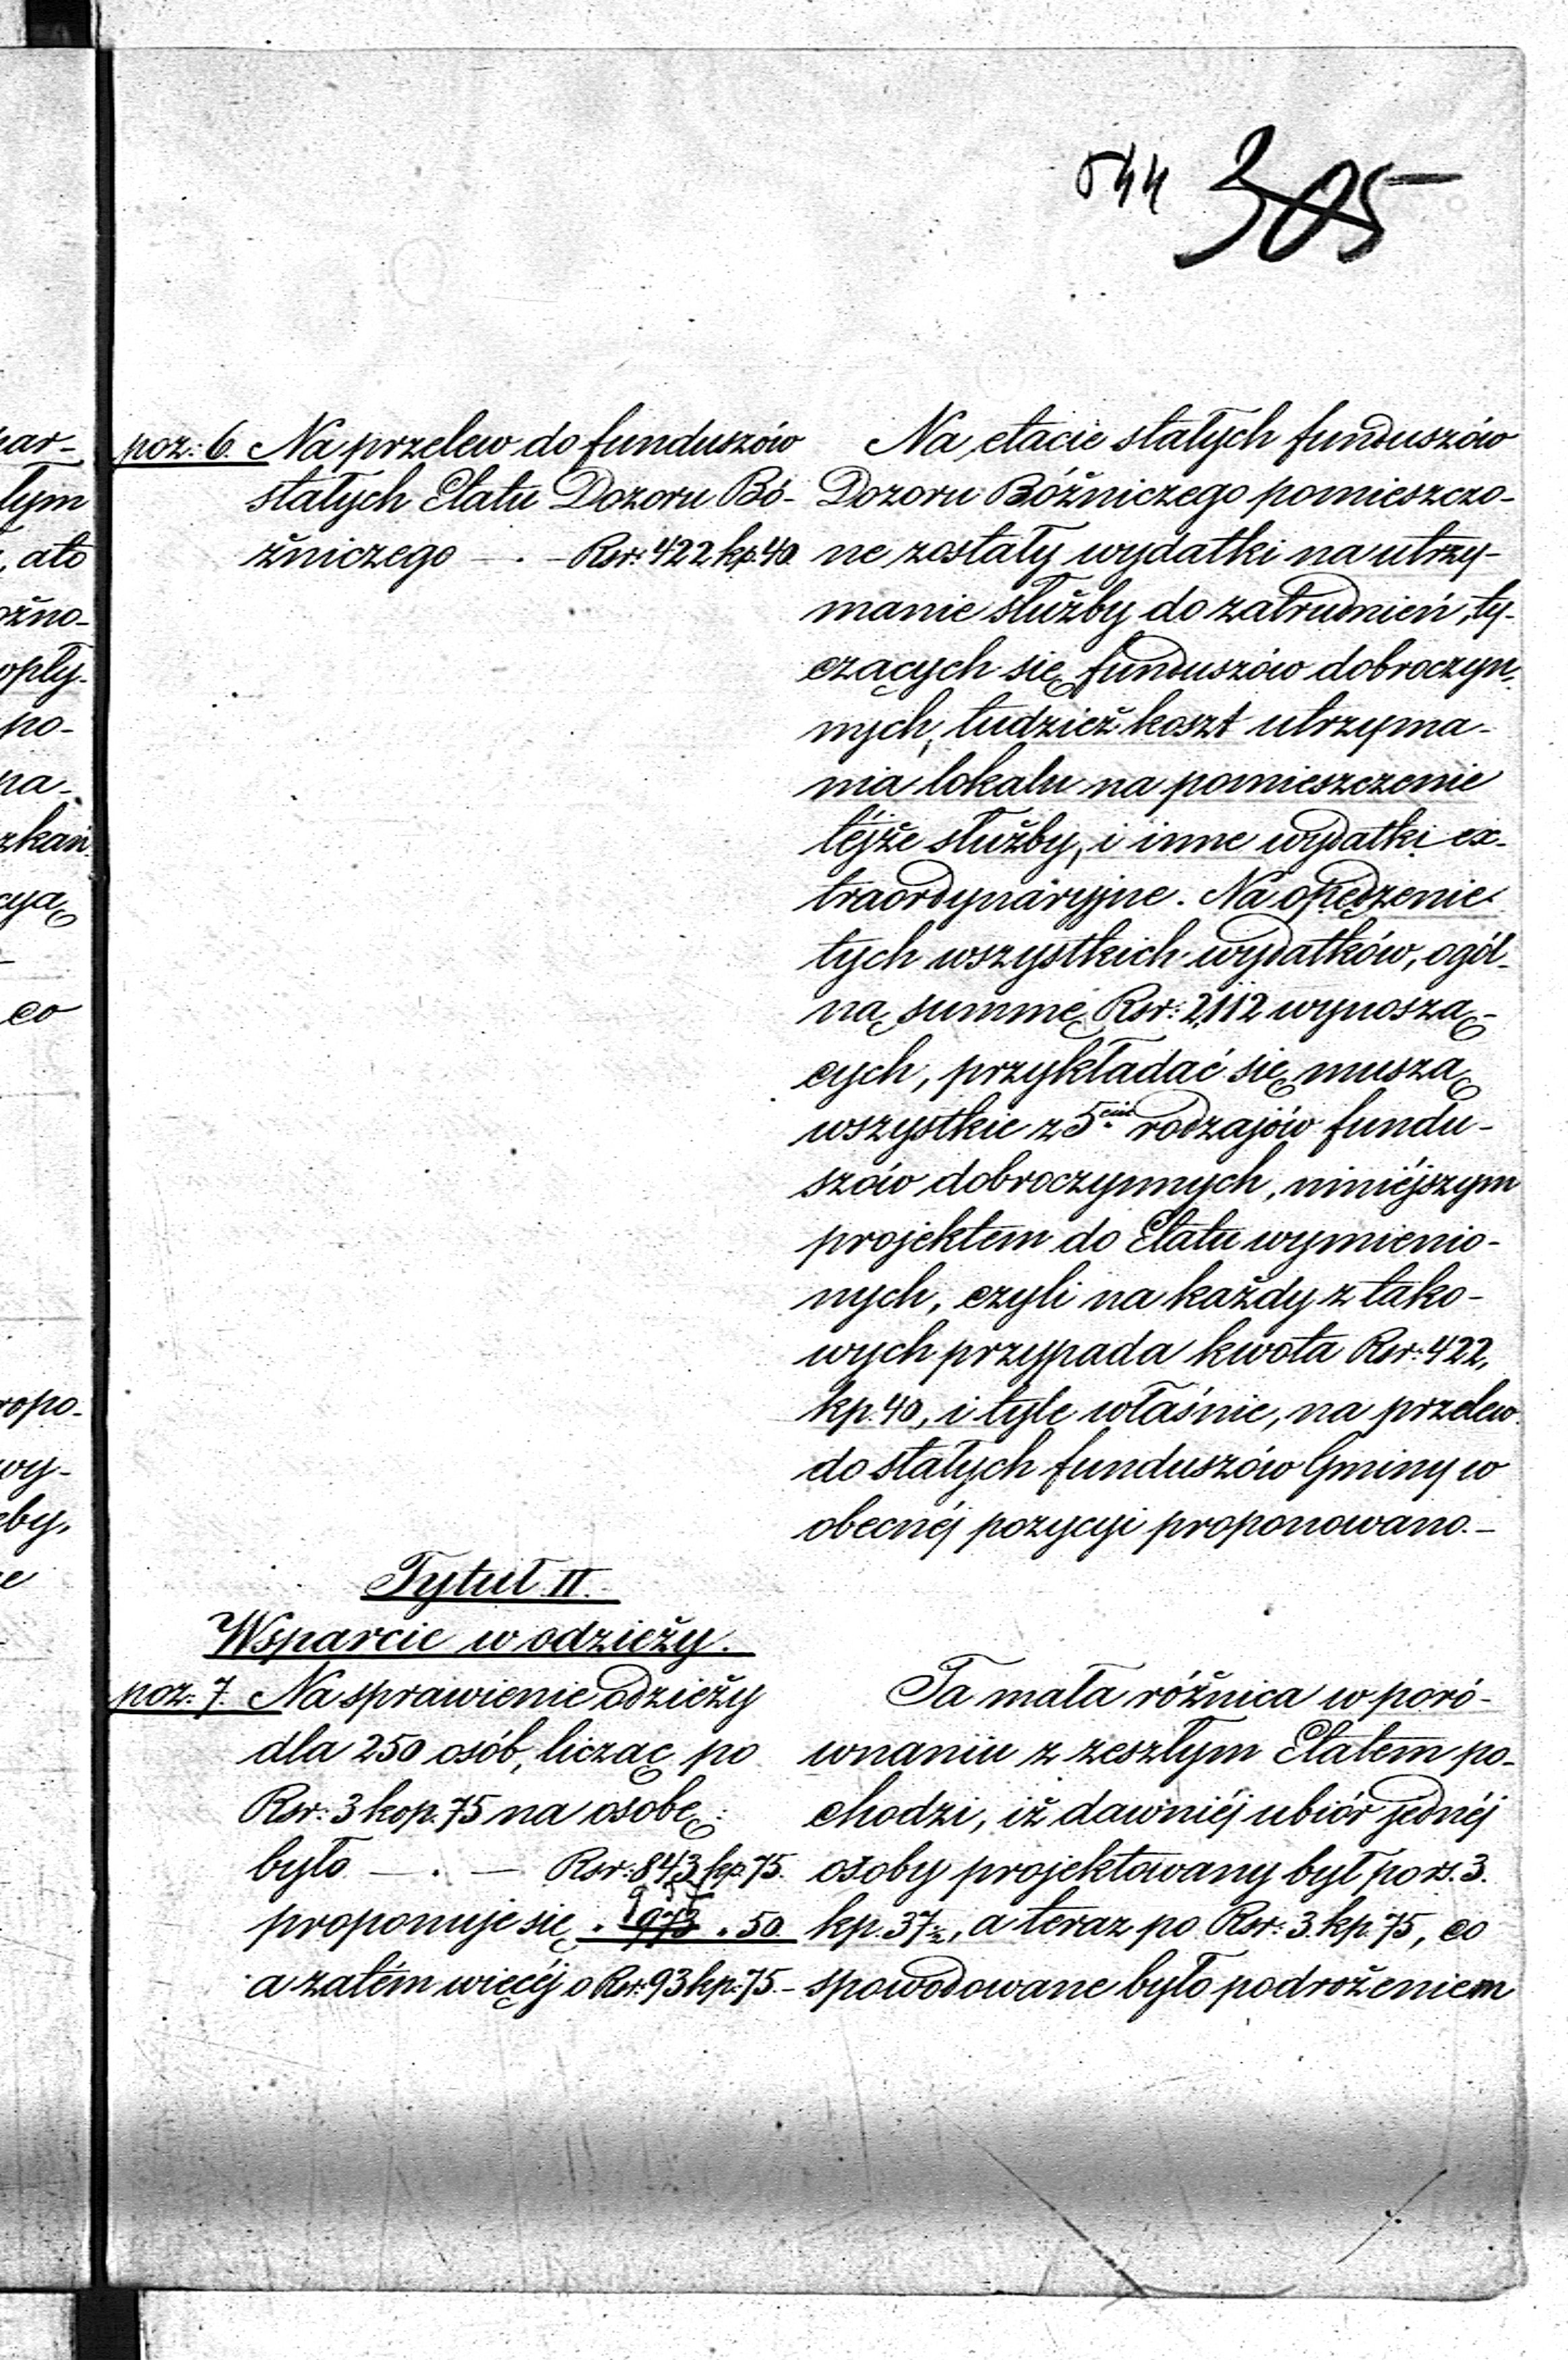 544 305
poz: 6. Na przelew do funduszów
stałych Etatu Dozoru Bó-
żniczego — . — Rsr: 422 kp. 40.
Na etacie stałych funduszów
Dozoru Bóżniczego pomieszczo-
ne zostały wydatki na utrzy-
manie służby do zatrudnień, ty-
czących się funduszów dobroczyn-
nych, tudzież koszt utrzyma-
nia lokalu na pomieszczenie
téjże służby, i inne wydatki ex-
traordynaryjne. Na opędzenie
tych wszystkich wydatków, ogól-
ną summę Rsr: 2,112 wynoszą-
cych, przykładać się muszą
wszystkie z 5ciu rodzajów fundu-
szów dobroczynnych, niniéjszym
projektem do Etatu wymienio-
nych, czyli na każdy z tako-
wych przypada kwota Rsr: 422,
kp. 40, i tyle właśnie, na przelew
do stałych funduszów Gminy w
obecnéj pozycyi proponowano. —
Tytuł II.
Wsparcie w odzieży.
poz: 7. Na sprawienie odzieży
dla 250 osób, licząc po
Rsr: 3 kop. 75 na osobę:
było — . — Rsr: 843 kp. 75.
proponuje się . 937 . 50.
a zatém więcéj o Rsr: 93 kp: 75. —
Ta mała różnica w poró-
wnaniu z zeszłym Etatem po-
chodzi, iż dawniéj ubiór jednéj
osoby projektowany był po rs. 3.
kp. 37½, a teraz po Rsr: 3. kp. 75, co
spowodowane było podrożeniem